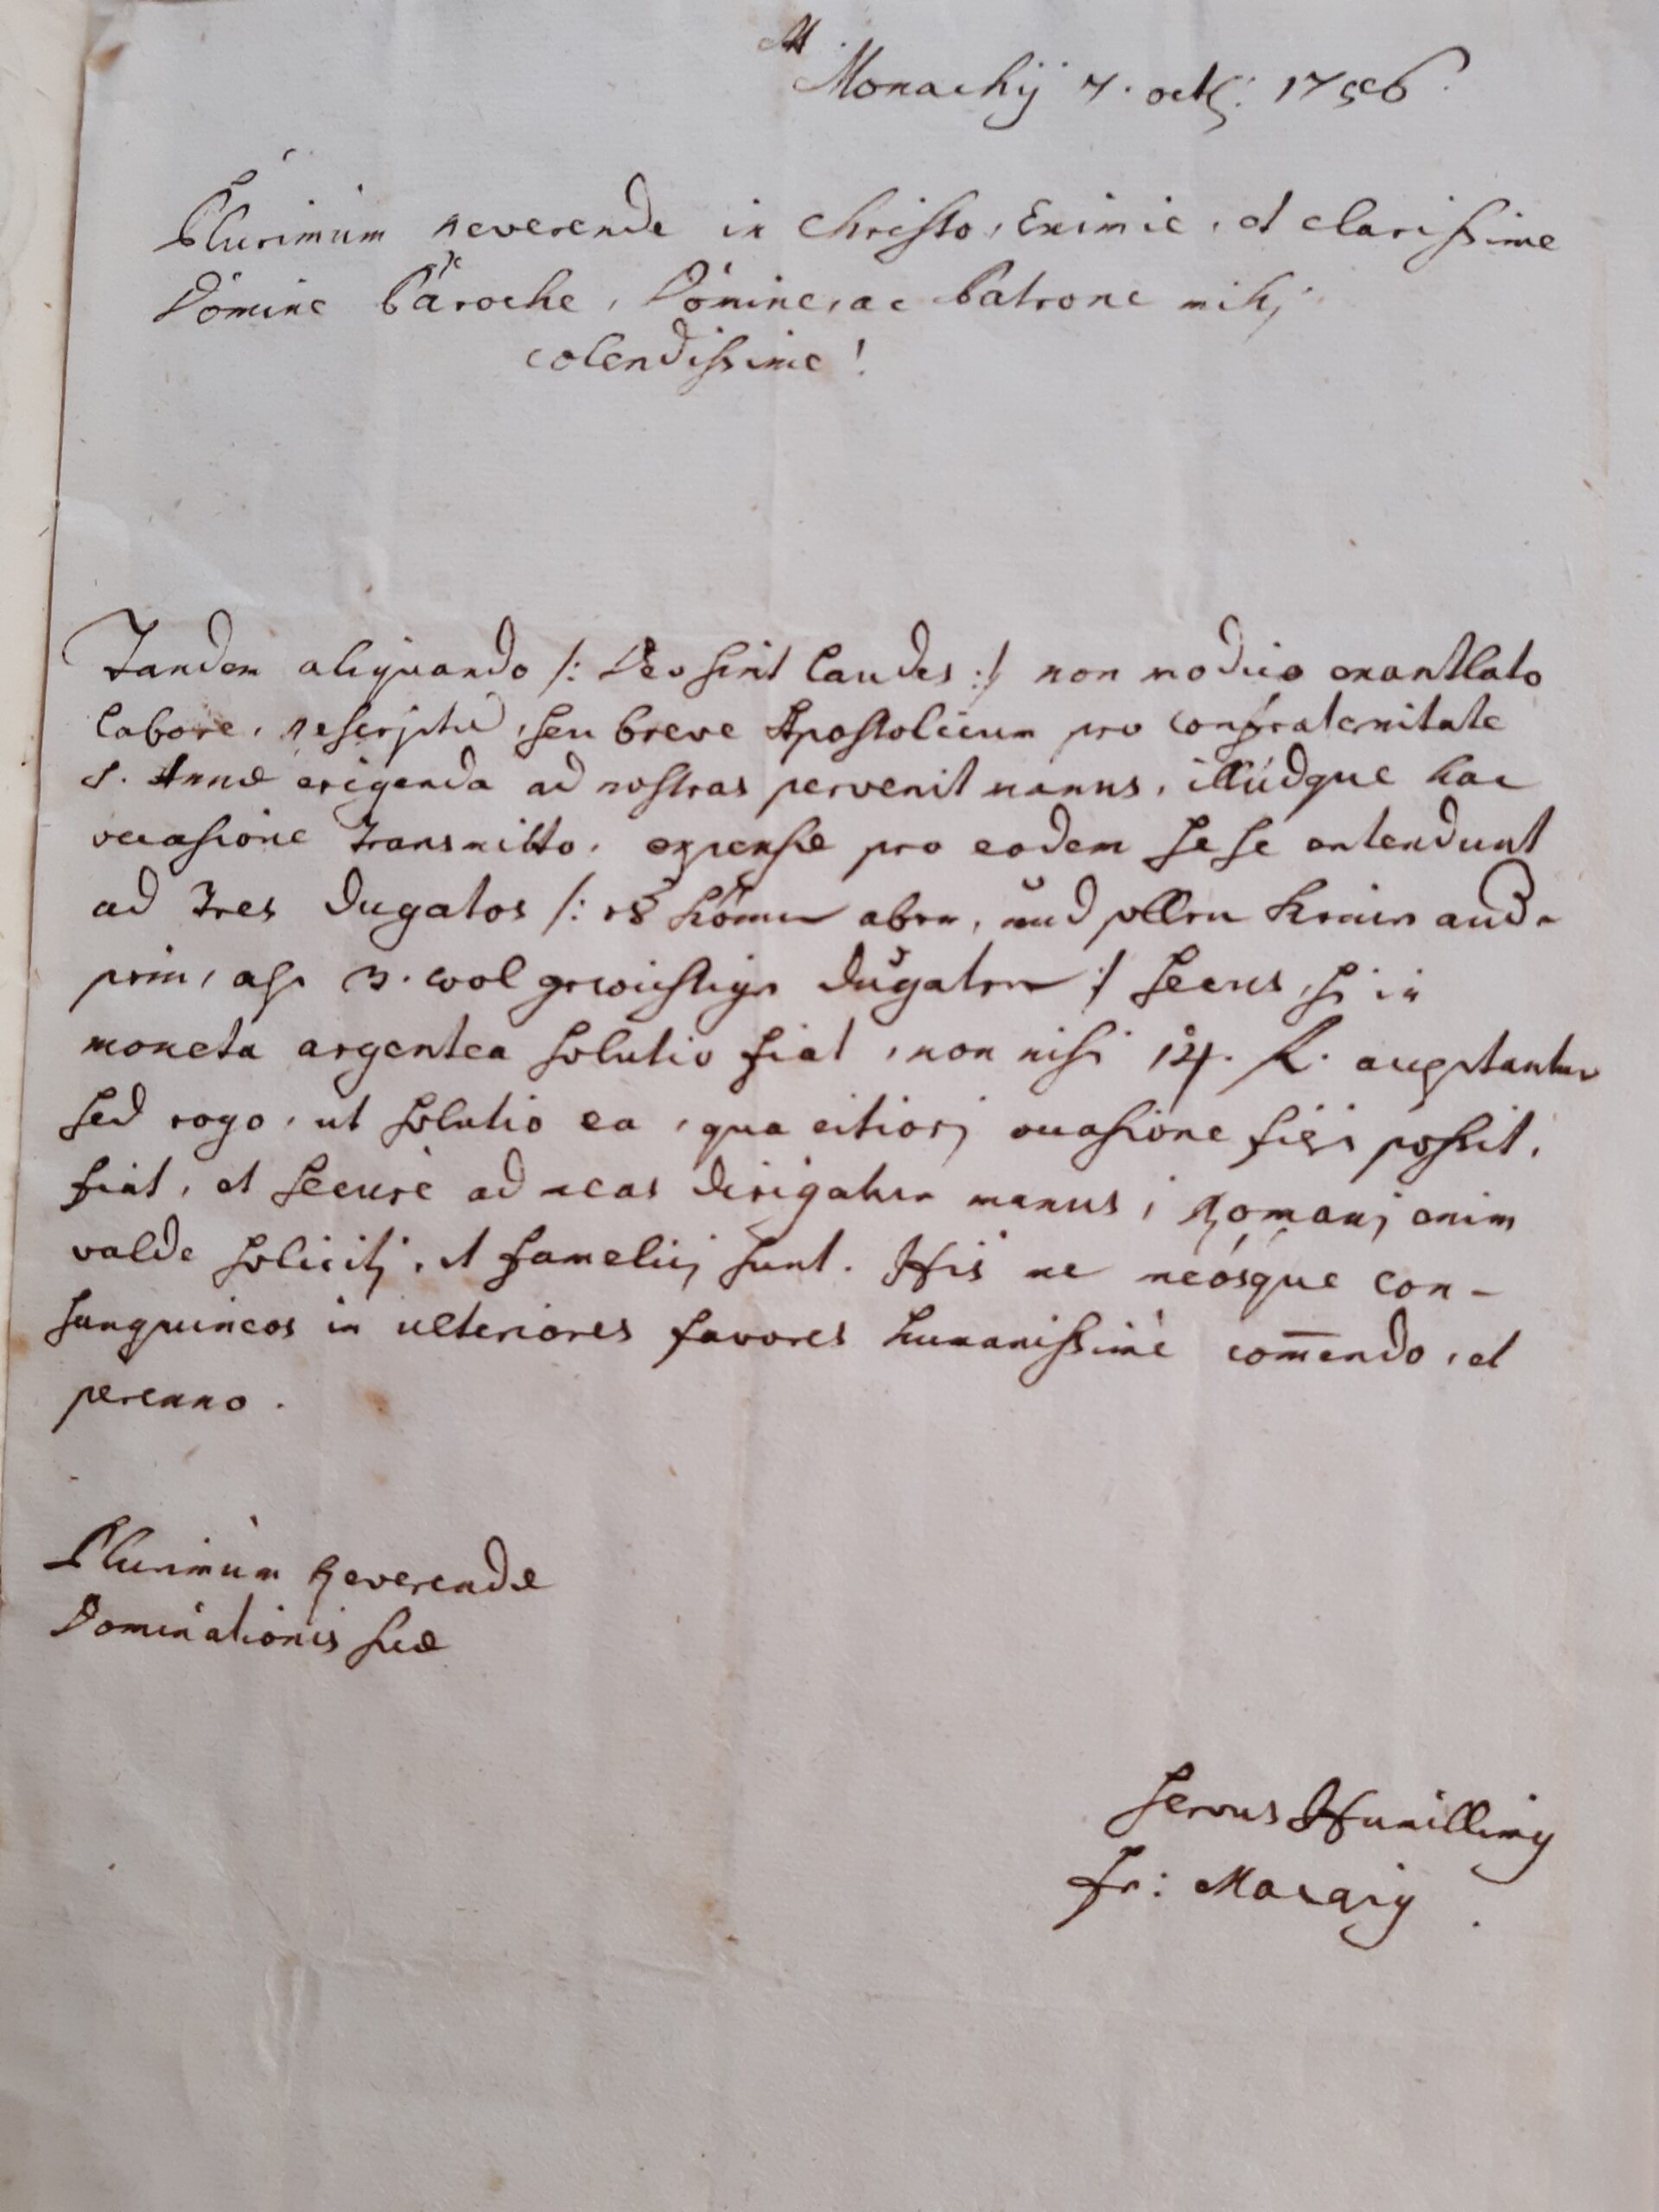 M
Monachij 7. octb: 1756.
Plurimum Reverende in Christo, Eximie, et clarissime
Domine Paroche, Domine, ac Patrone mihj
colendissime!
Tandem aliquando /: Deo sint laudes :/ non modico exantlato
labore, rescriptu, seu breve Apostolicum pro confraternitate
S. Annæ erigenda ad nostras pervenit manus, illudque hac
occasione transmitto. expensæ pro eodem sese extendunt
ad tres Dugatos /: es können aber, und sollen keine andere
sein, als 3. wol gewichtige Dugaten :/ secus, si in
moneta argentea solutio fiat, non nisi 14. f. acceptantur
sed rogo, ut solutio ea, qua citiorj occasione fieri possit,
fiat, et secure ad meas dirigatur manus, Romanj enim
valde solicitj, et famelicj sunt. His me meosque con-
sanguineos in ulteriores favores humanissimè com̄endo, et
perenno.
Plurimum Reverendæ
Dominationis suæ
Servus Humillimus
Fr: Macarius